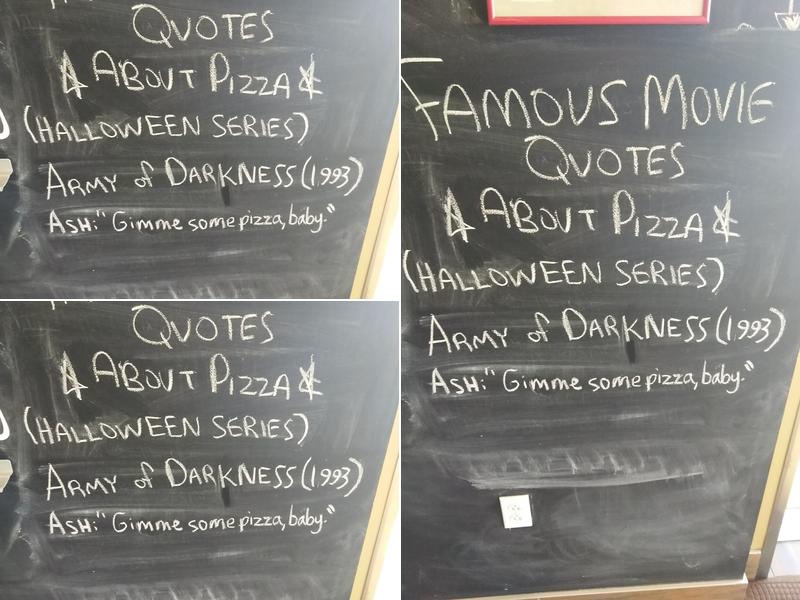 QUOTES
ABOUT PIZZA
(HALLOWEEN SERIES)
ARMY of DARKNESS (1993)
ASH: "Gimme some pizza, baby."
QUOTES
ABOUT PIZZA
(HALLOWEEN SERIES)
ARMY of DARKNESS (1993)
ASH: "Gimme some pizza, baby."
FAMOUS MOVIE
QUOTES
ABOUT PIZZA
(HALLOWEEN SERIES)
ARMY of DARKNESS (1993)
ASH: "Gimme some pizza, baby."